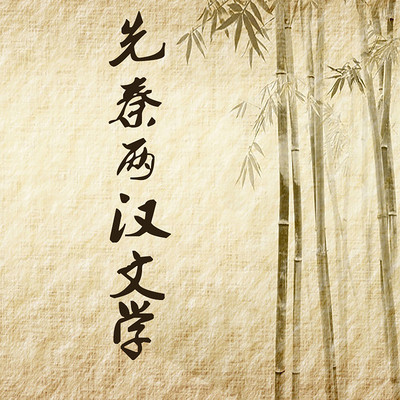 先秦两汉文学